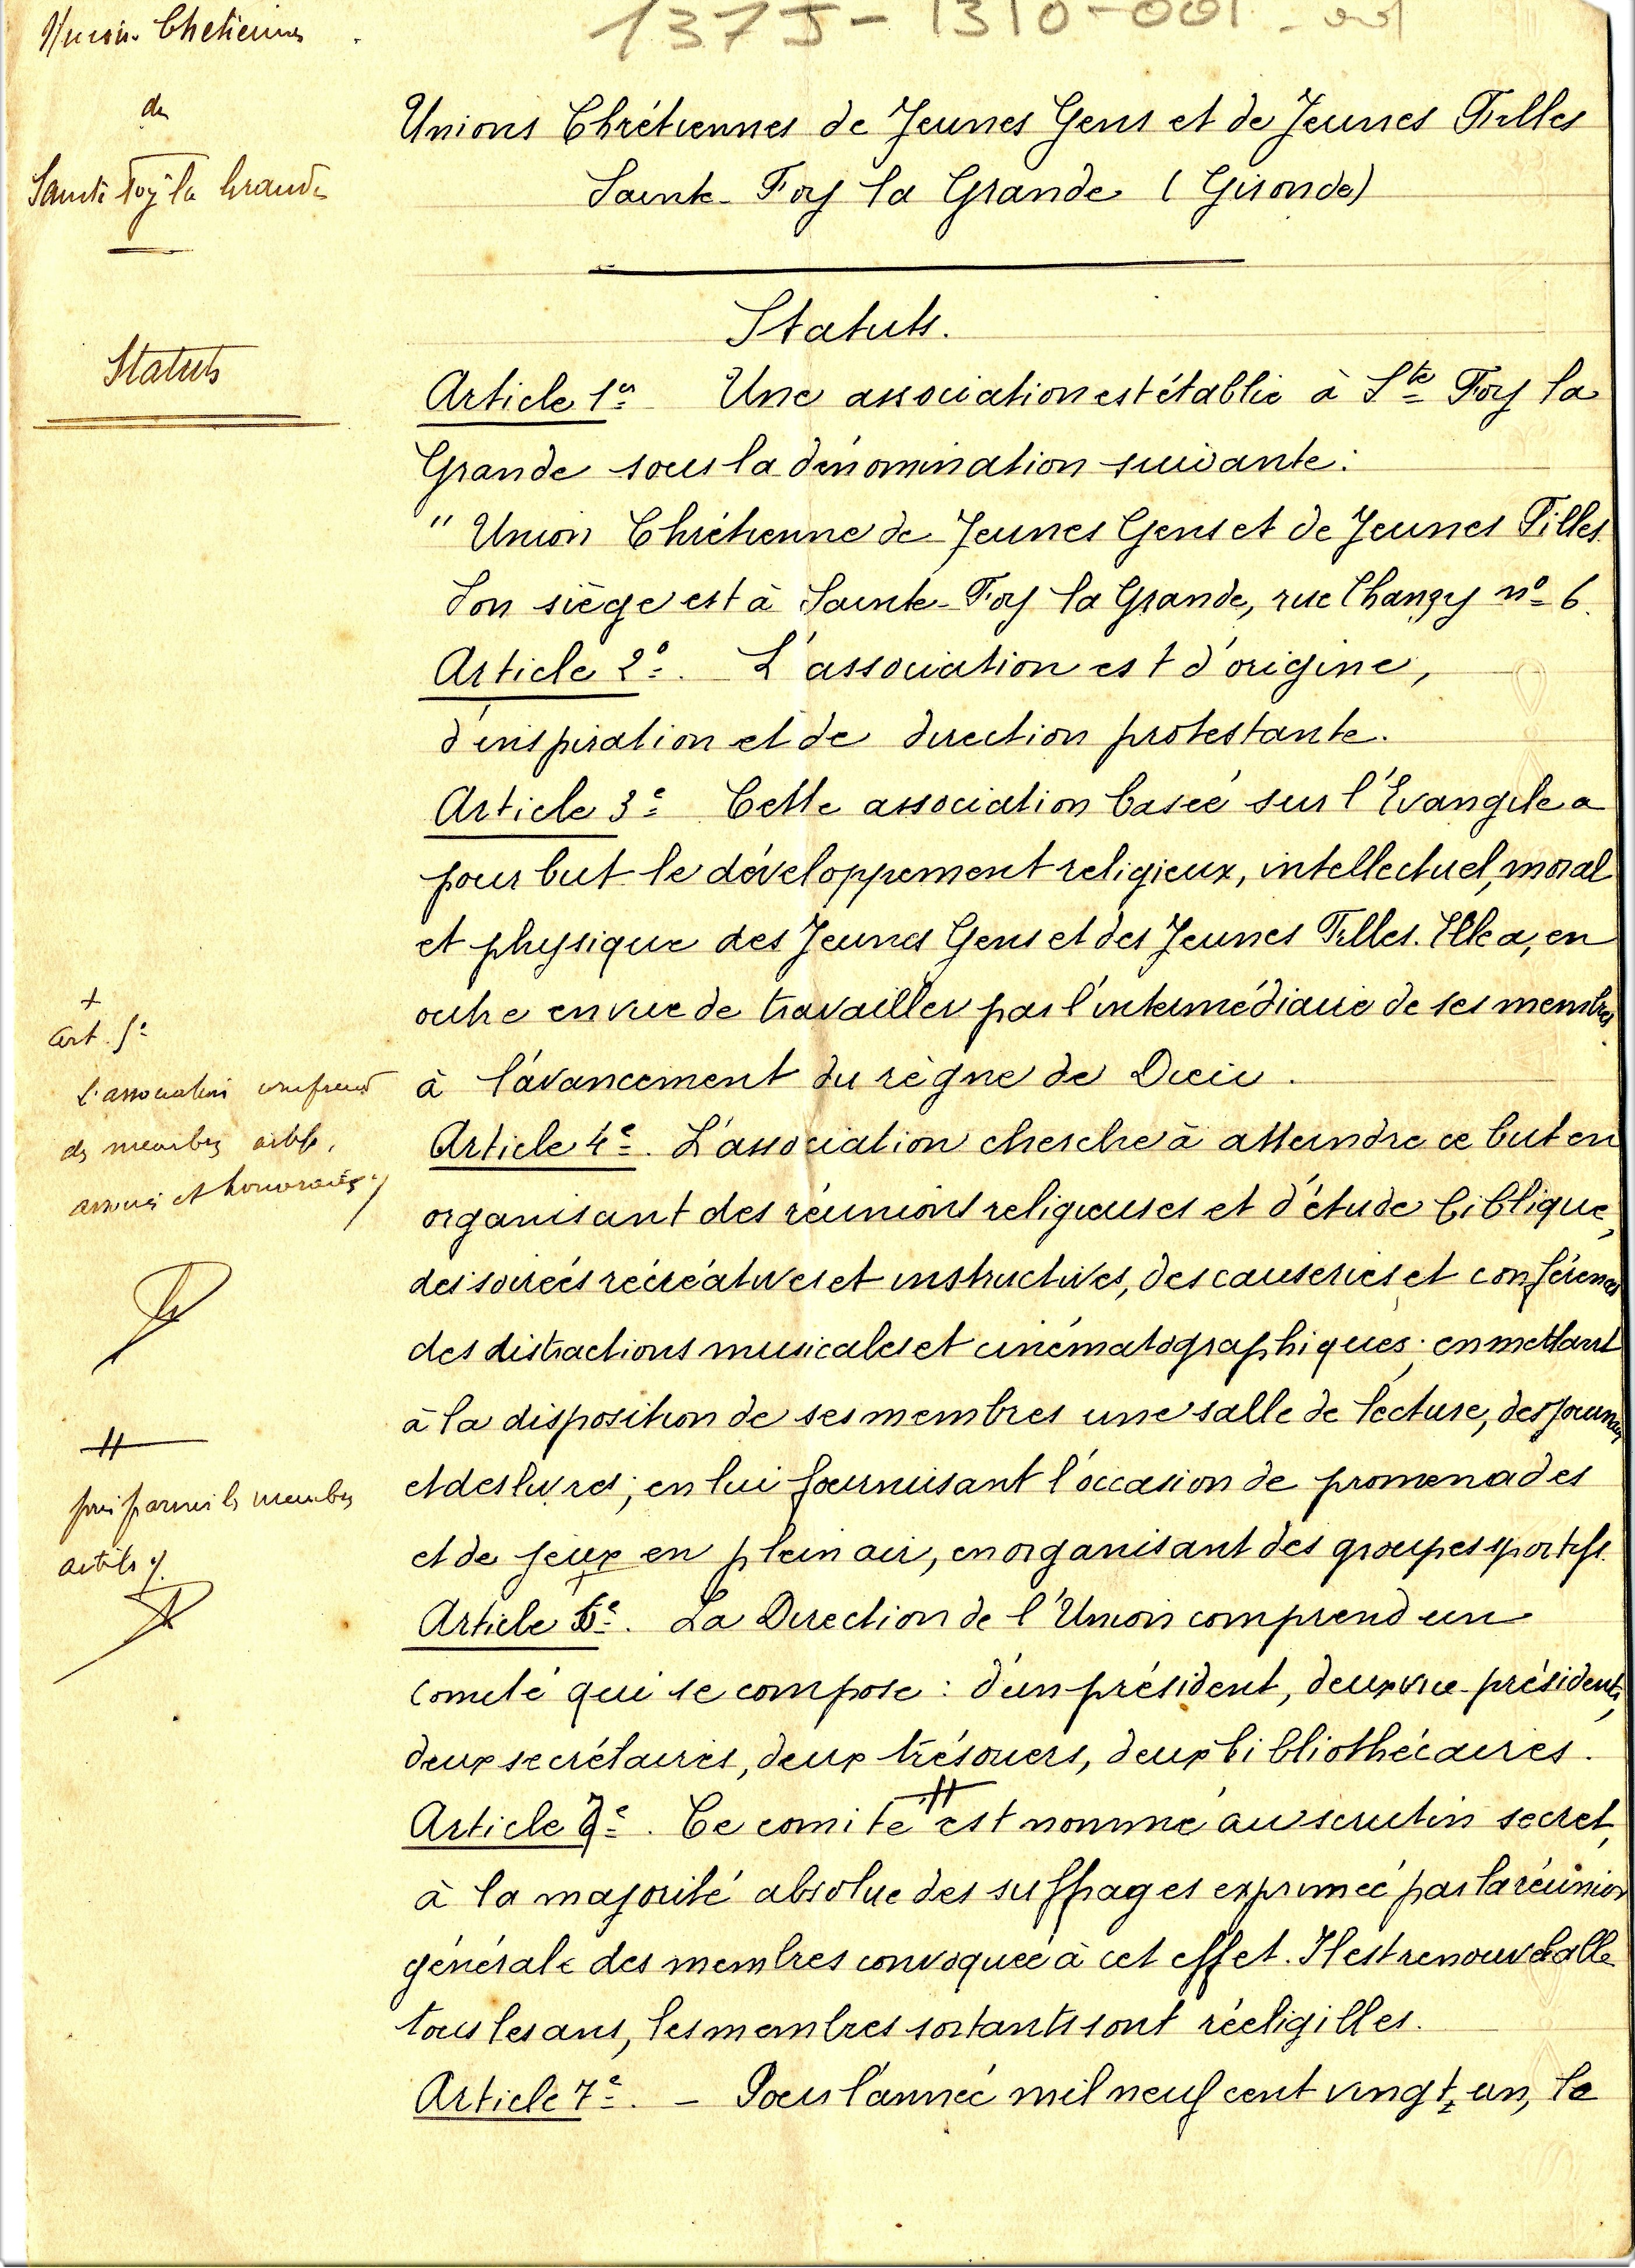 1375-1310-001-001
Union Chrétienne
de
Sainte Foy la Grande
Statuts
Unions Chrétiennes de Jeunes Gens et de Jeunes Filles
Sainte-Foy la Grande (Gironde)
Statuts.
Article 1er Une association est établie à Ste Foy la
Grande sous la dénomination suivante:
" Union Chrétienne de Jeunes Gens et de Jeunes Filles
Son siège est à Sainte-Foy la Grande, rue Chanzy nº 6.
Article 2º. L'association est d'origine,
d'inspiration et de direction protestante.
Article 3e Cette association basée sur l'Evangile a
pour but le développement religieux, intellectuel, moral
et physique des Jeunes Gens et des Jeunes Filles. Elle a, en
outre en vue de travailler par l'intermédiaire de ses membres
à l'avancement du règne de Dieu.
Article 4e. L'association cherche à atteindre ce but en
organisant des réunions religieuses et d'étude biblique,
des soirées récréatives et instructives, des causeries et conférences
des distractions musicales et cinématographiques; en mettant
à la disposition de ses membres une salle de lecture, des journaux
et des livres; en lui fournissant l'occasion de promenades
et de jeux en plein air, en organisant des groupes sportifs.
+
Article 6e. La Direction de l'Union comprend un
comité qui se compose: d'un président, deux vice-présidents,
deux secrétaires, deux trésoriers, deux bibliothécaires.
Article 7e. Ce comité # est nommé au scrutin secret,
à la majorité absolue des suffrages exprimée par la réunion
générale des membres convoquée à cet effet. Il est renouvelable
tous les ans, les membres sortants sont rééligibles.
Article 7e. - Pour l'année mil neuf cent vingt-un, le
+
Art. 5e
L'association comprend
des membres actifs,
associés et honoraires
#
pris parmi les membres
actifs